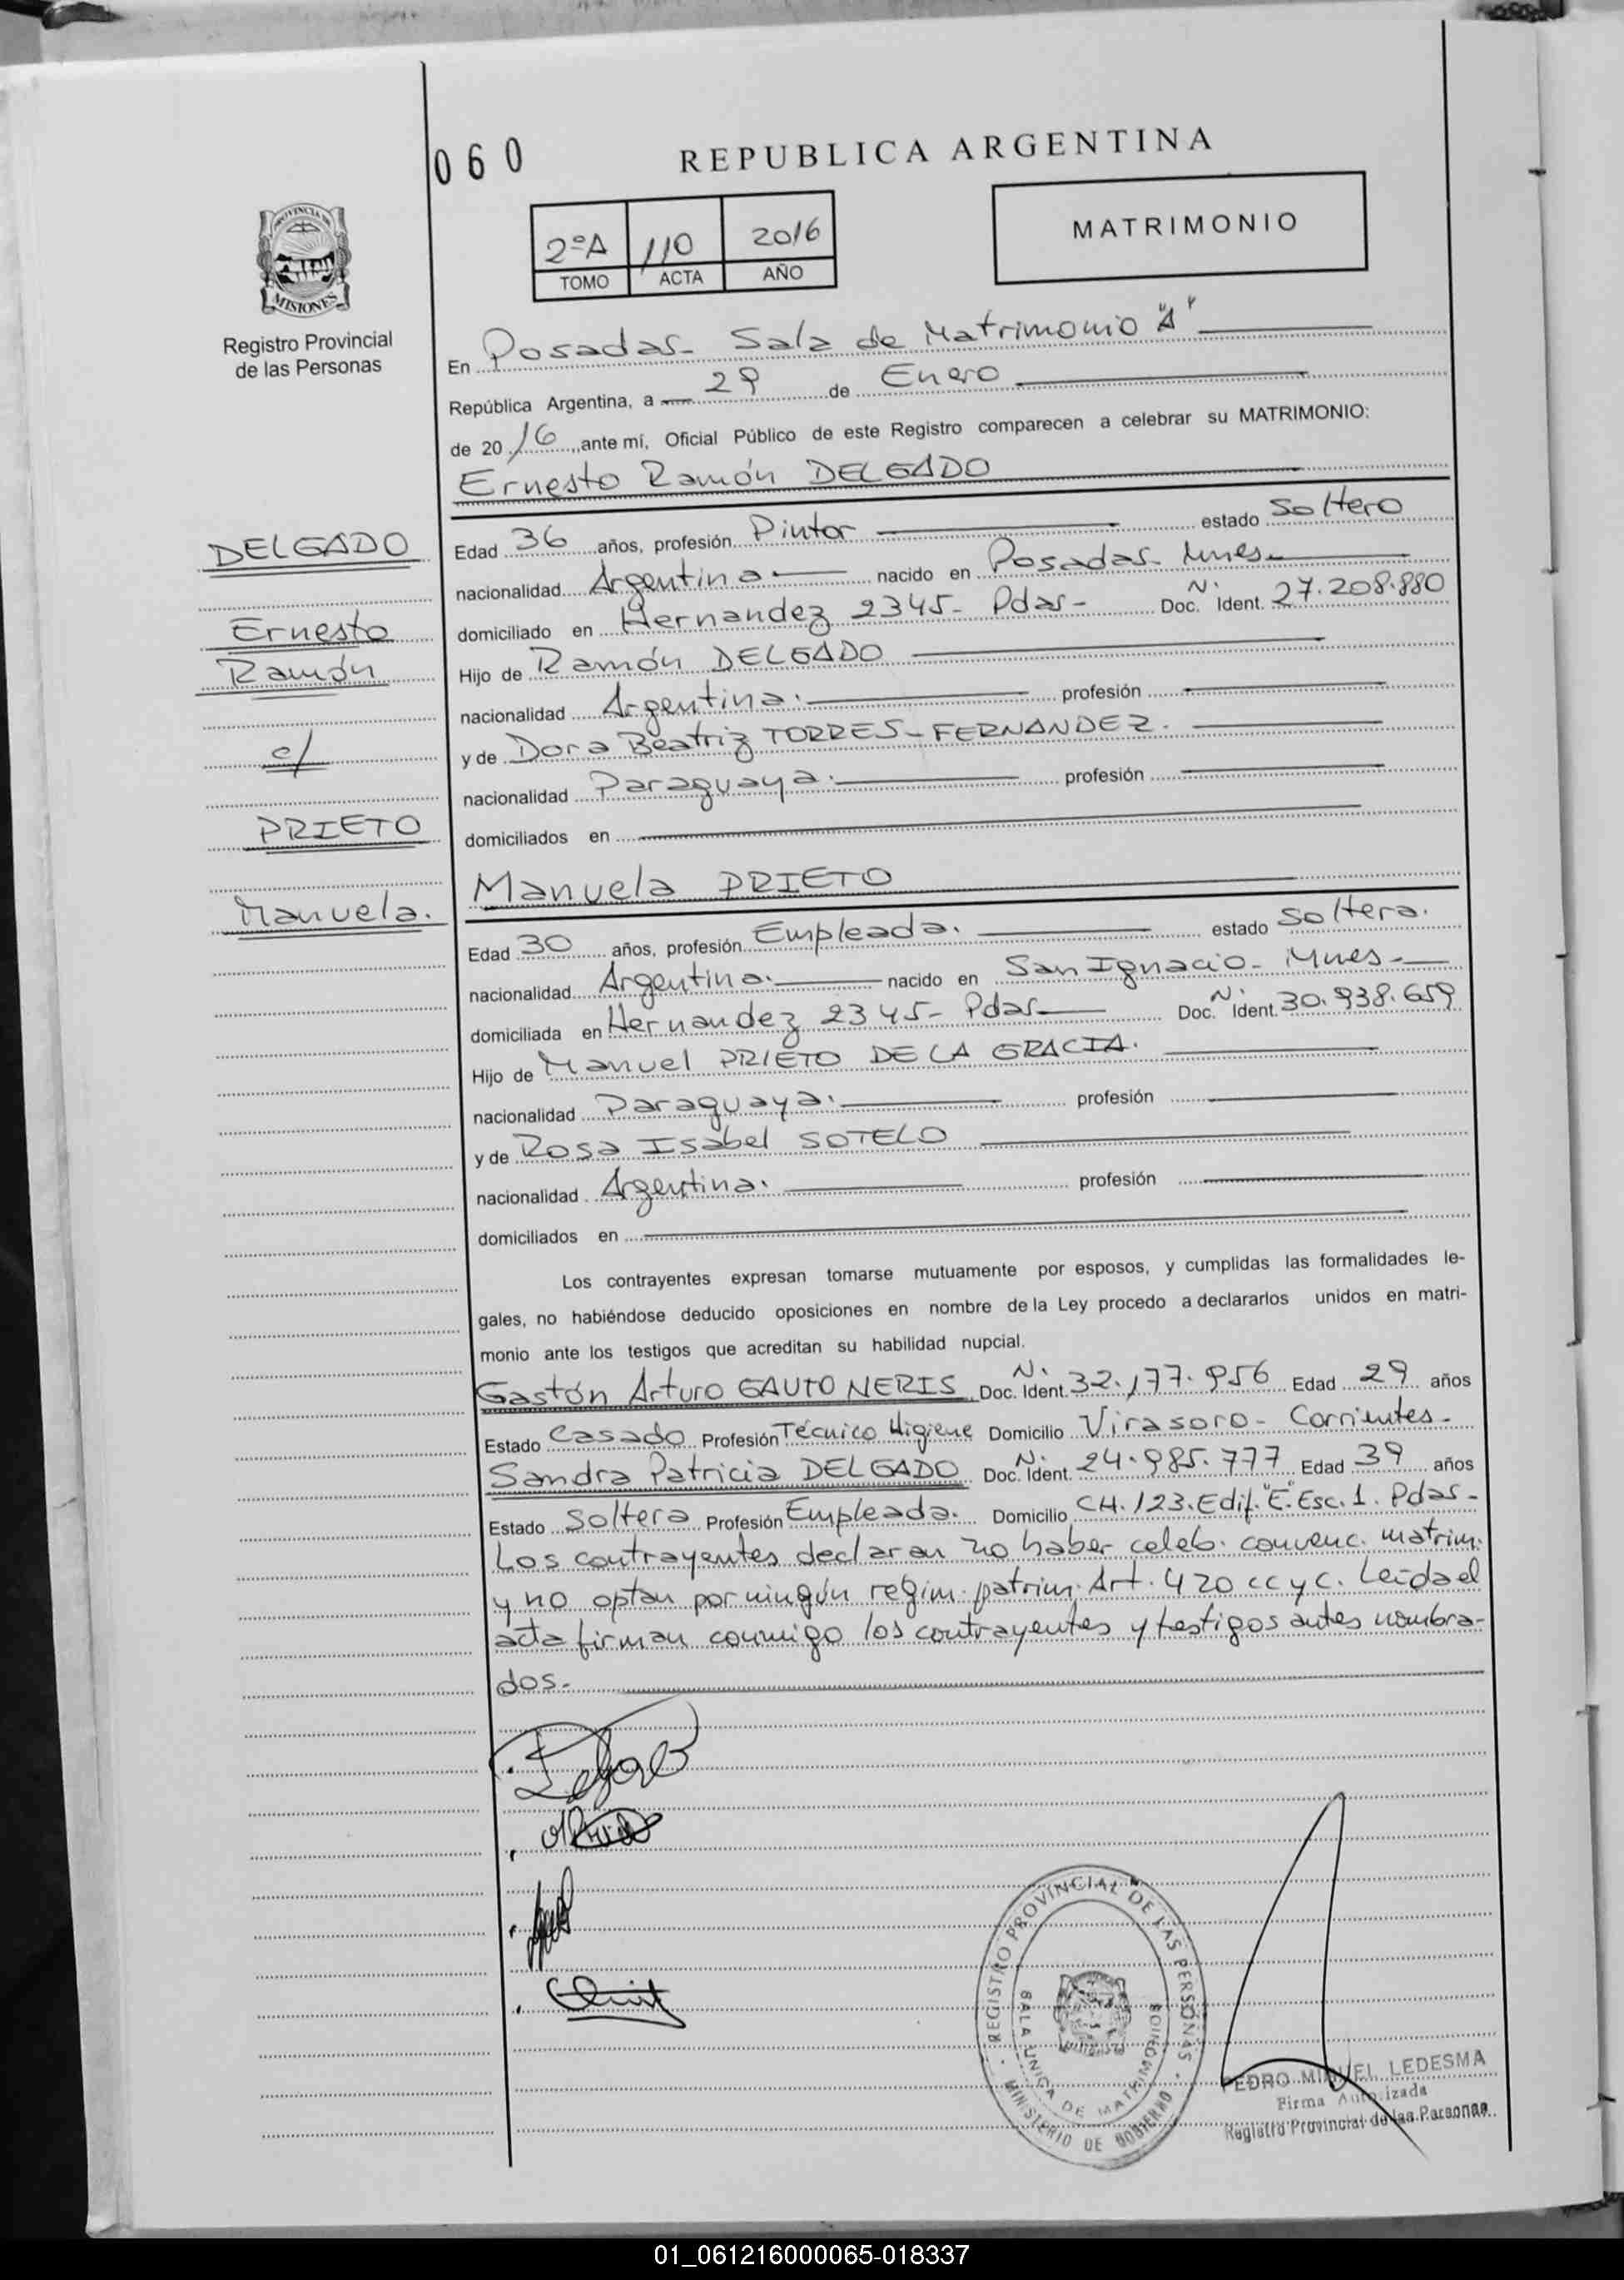 060
REPUBLICA ARGENTINA
PROVINCIA DE
MISIONES
Registro Provincial
de las Personas
2ºA 110 2016
TOMO ACTA AÑO
MATRIMONIO
En Posadas- Sala de Matrimonio "A"
República Argentina, a 29 de Enero
de 2016, ante mí, Oficial Público de este Registro comparecen a celebrar su MATRIMONIO:
Ernesto Ramón DELGADO
DELGADO
Ernesto
Ramón
c/
PRIETO
Manuela.
Edad 36 años, profesión Pintor estado Soltero
nacionalidad Argentina nacido en Posadas- Mnes-
domiciliado en Hernandez 2345- Pdas- Doc. Nº Ident. 27.208.880
Hijo de Ramón DELGADO
nacionalidad Argentina. profesión
y de Dora Beatriz TORRES-FERNANDEZ.
nacionalidad Paraguaya. profesión
domiciliados en
Manuela PRIETO
Edad 30 años, profesión Empleada. estado Soltera.
nacionalidad Argentina. nacido en San Ignacio- Mnes-
domiciliada en Hernandez 2345- Pdas- Doc. Nº Ident. 30.938.659
Hijo de Manuel PRIETO DE LA GRACIA.
nacionalidad Paraguaya. profesión
y de Rosa Isabel SOTELO
nacionalidad Argentina. profesión
domiciliados en
Los contrayentes expresan tomarse mutuamente por esposos, y cumplidas las formalidades le-
gales, no habiéndose deducido oposiciones en nombre de la Ley procedo a declararlos unidos en matri-
monio ante los testigos que acreditan su habilidad nupcial.
Gastón Arturo GAUTO NERIS Doc. Nº Ident. 32.177.956 Edad 29 años
Estado Casado Profesión Técnico Higiene Domicilio Virasoro- Corrientes-
Sandra Patricia DELGADO Doc. Nº Ident. 24.985.777 Edad 39 años
Estado Soltera Profesión Empleada. Domicilio CH. 123. Edif. "E" Esc. 1. Pdas-
Los contrayentes declaran no haber celeb. convenc. matrim.
y no optan por ningún regim. patrim. Art. 420 cc y c. Leída el
acta firman conmigo los contrayentes y testigos antes nombra-
dos.-
REGISTRO PROVINCIAL DE LAS PERSONAS
SALA UNICA DE MATRIMONIOS
MINISTERIO DE GOBIERNO
PEDRO MIGUEL LEDESMA
Firma Autorizada
Registro Provincial de las Personas
01_061216000065-018337